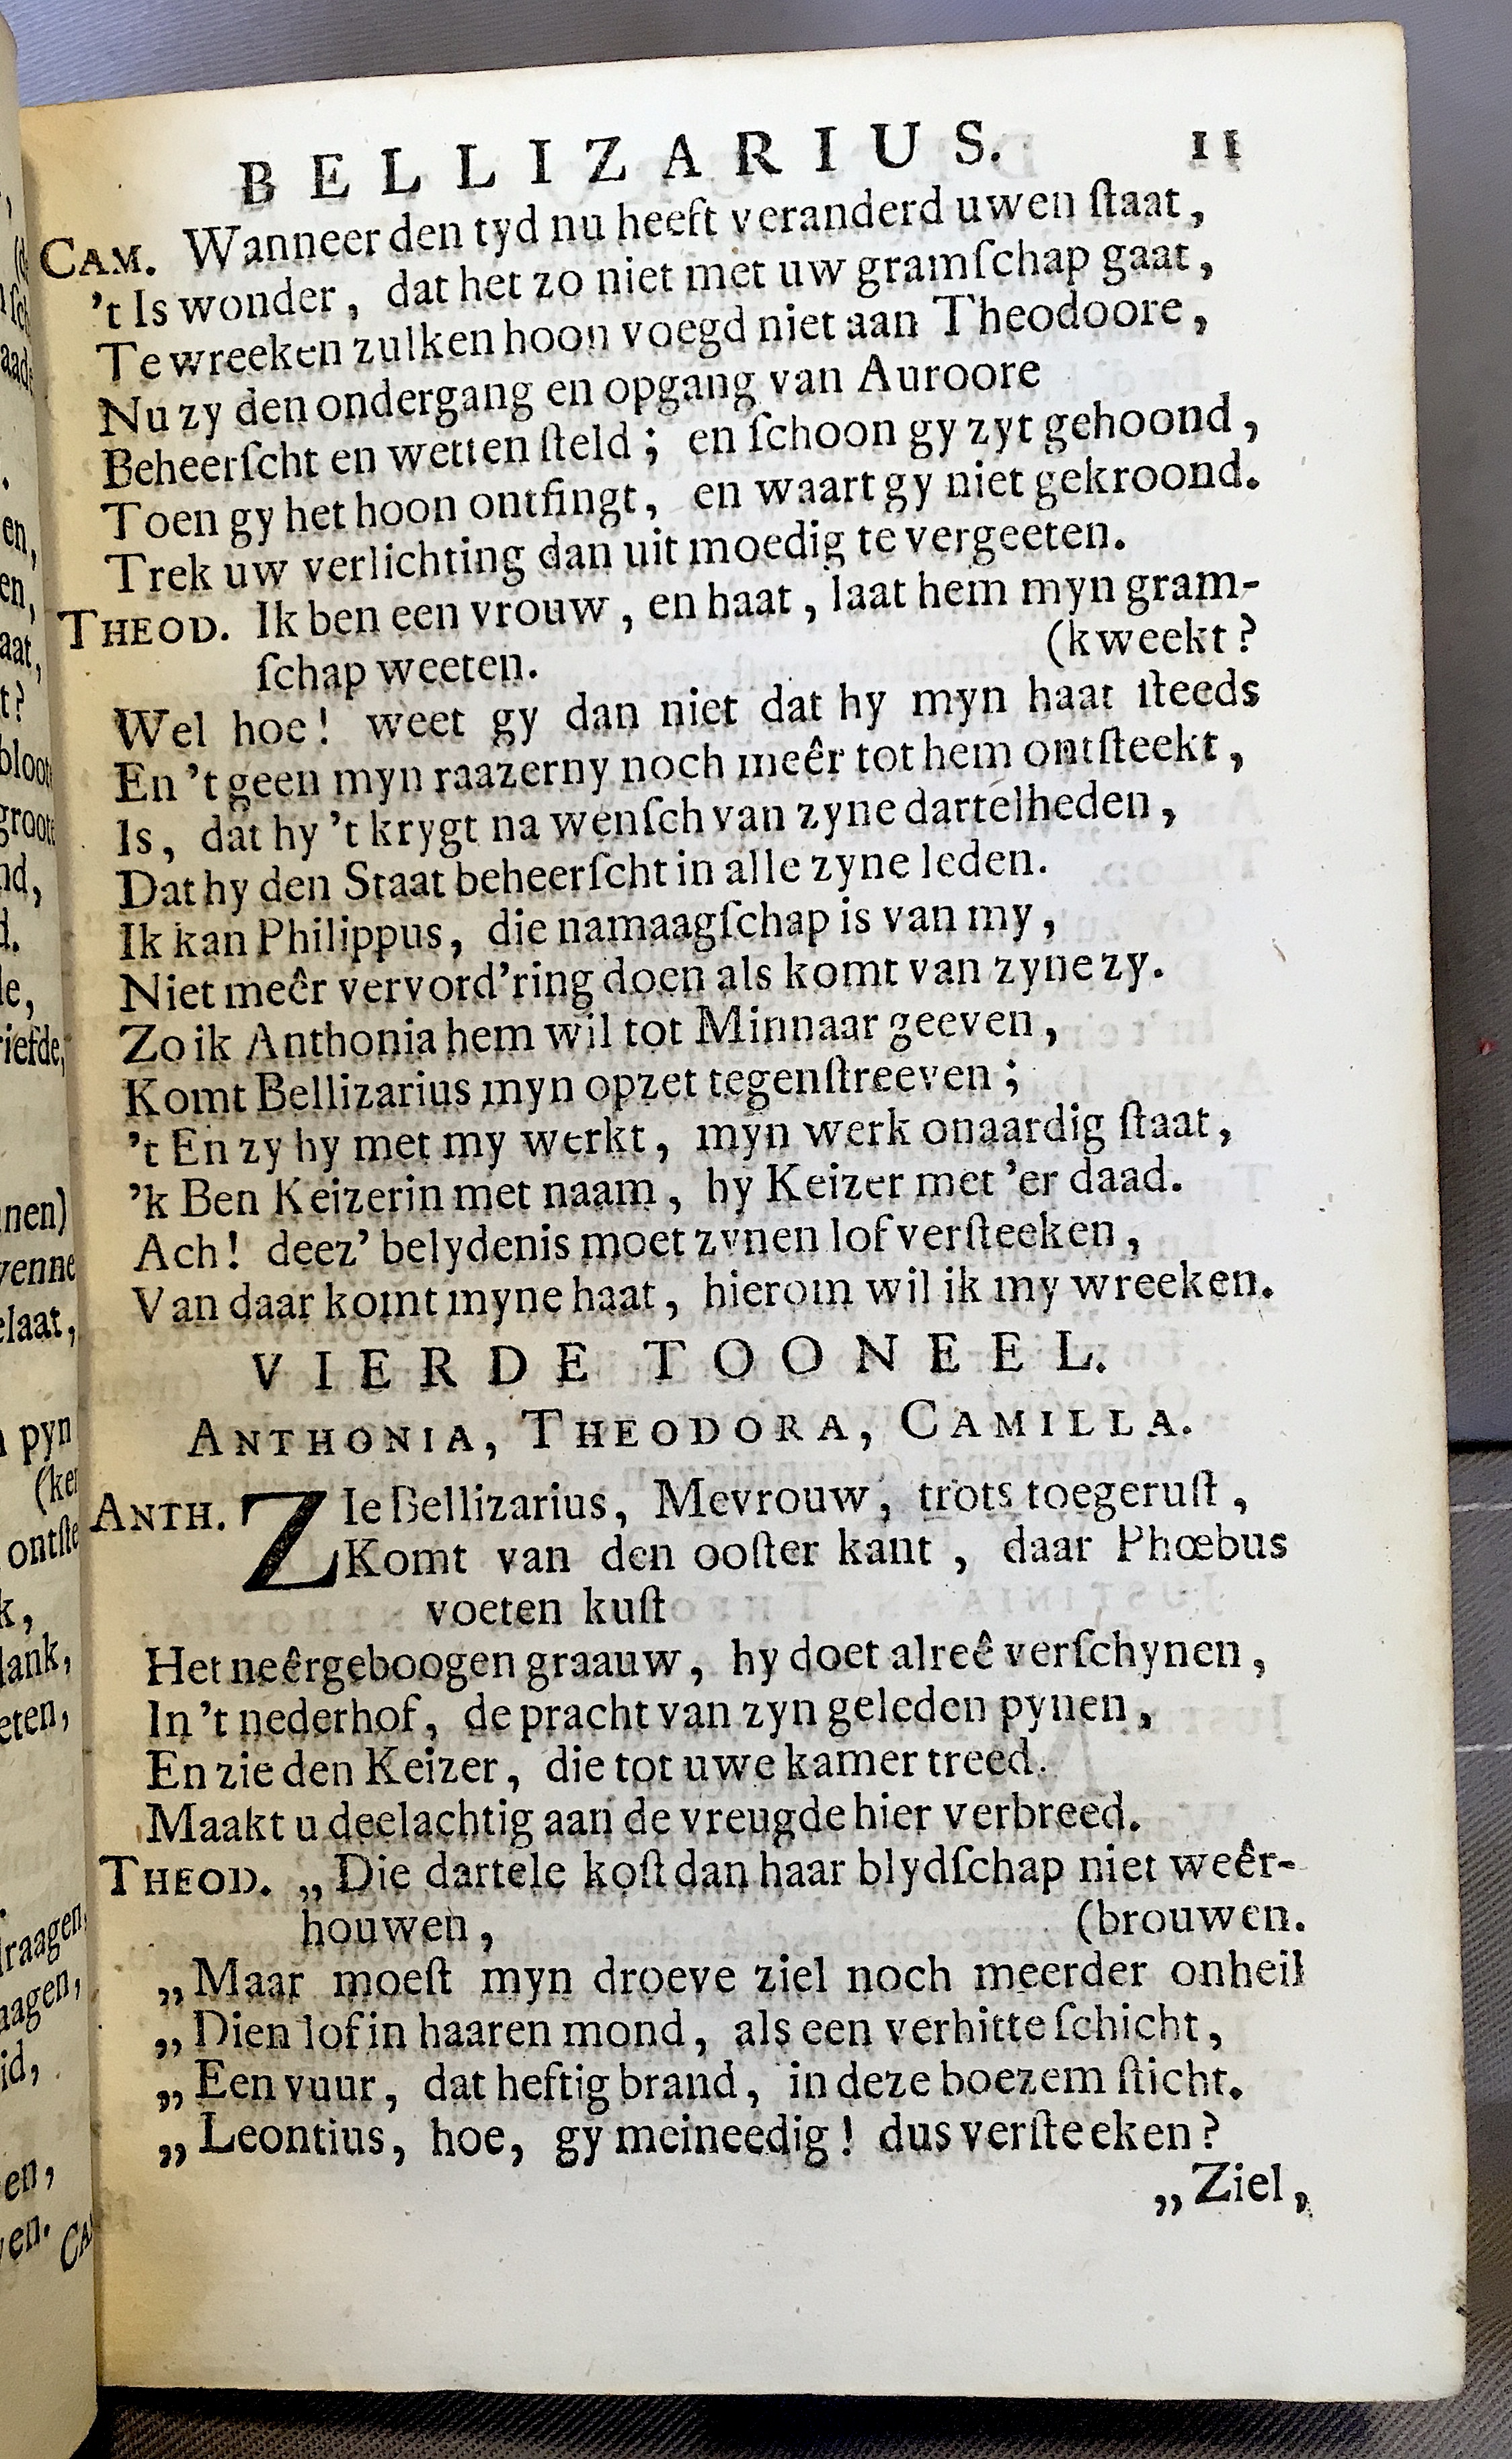 BELLIZARIUS. 11
CAM. Wanneer den tyd nu heeft veranderd uwen ſtaat,
't Is wonder, dat het zo niet met uw gramſchap gaat,
Te wreeken zulken hoon voegd niet aan Theodoore,
Nu zy den ondergang en opgang van Auroore
Beheerſcht en wetten ſteld; en ſchoon gy zyt gehoond,
Toen gy het hoon ontfingt, en waart gy niet gekroond.
Trek uw verlichting dan uit moedig te vergeeten.
THEOD. Ik ben een vrouw, en haat, laat hem myn gram-
ſchap weeten. (kweekt?
Wel hoe! weet gy dan niet dat hy myn haat ſteeds
En 't geen myn raazerny noch meêr tot hem ontſteekt,
Is, dat hy 't krygt na wenſch van zyne dartelheden,
Dat hy den Staat beheerſcht in alle zyne leden.
Ik kan Philippus, die namaagſchap is van my,
Niet meêr vervord'ring doen als komt van zyne zy.
Zo ik Anthonia hem wil tot Minnaar geeven,
Komt Bellizarius myn opzet tegenſtreeven;
't En zy hy met my werkt, myn werk onaardig ſtaat,
'k Ben Keizerin met naam, hy Keizer met 'er daad.
Ach! deez' belydenis moet zynen lof verſteeken,
Van daar komt myne haat, hierom wil ik my wreeken.
VIERDE TOONEEL.
ANTHONIA, THEODORA, CAMILLA.
ANTH. ZIe Bellizarius, Mevrouw, trots toegeruſt,
Komt van den ooſter kant, daar Phœbus
voeten kuſt
Het neêrgeboogen graauw, hy doet alreê verſchynen,
In 't nederhof, de pracht van zyn geleden pynen,
En zie den Keizer, die tot uwe kamer treed.
Maakt u deelachtig aan de vreugde hier verbreed.
THEOD. „Die dartele koſt dan haar blydſchap niet weêr-
houwen, (brouwen.
„Maar moeſt myn droeve ziel noch meerder onheil
„Dien lof in haaren mond, als een verhitte ſchicht,
„Een vuur, dat heftig brand, in deze boezem ſticht.
„Leontius, hoe, gy meineedig! dus verſteeken?
„Ziel,
en,
en,
aat,
t?
nd,
d.
le,
nen)
elaat,
pyn
k,
lank,
eten,
raagen,
id,
en,